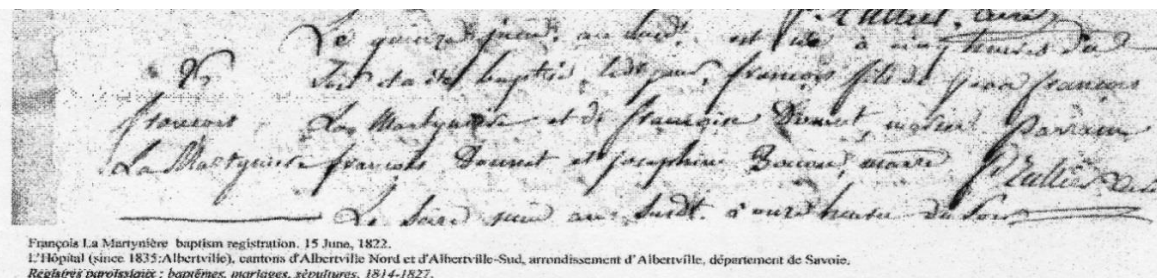 Le quinze juin, an susdt. est né à cinq heures du
N
soir et a été baptisé, led. jour, françois fils de jean françois
françois
La Martyniere et de françoise Donnet, mariés parrain
La Martyniere
françois Donnet et josephine mariée
Le seize juin an susdt. à onze heures du soir
François La Martynière baptism registration. 15 June, 1822.
L'Hôpital (since 1835:Albertville), cantons d'Albertville Nord et d'Albertville-Sud, arrondissement d'Albertville, département de Savoie.
Registres paroissiaux : baptêmes, mariages, sépultures, 1814-1827.